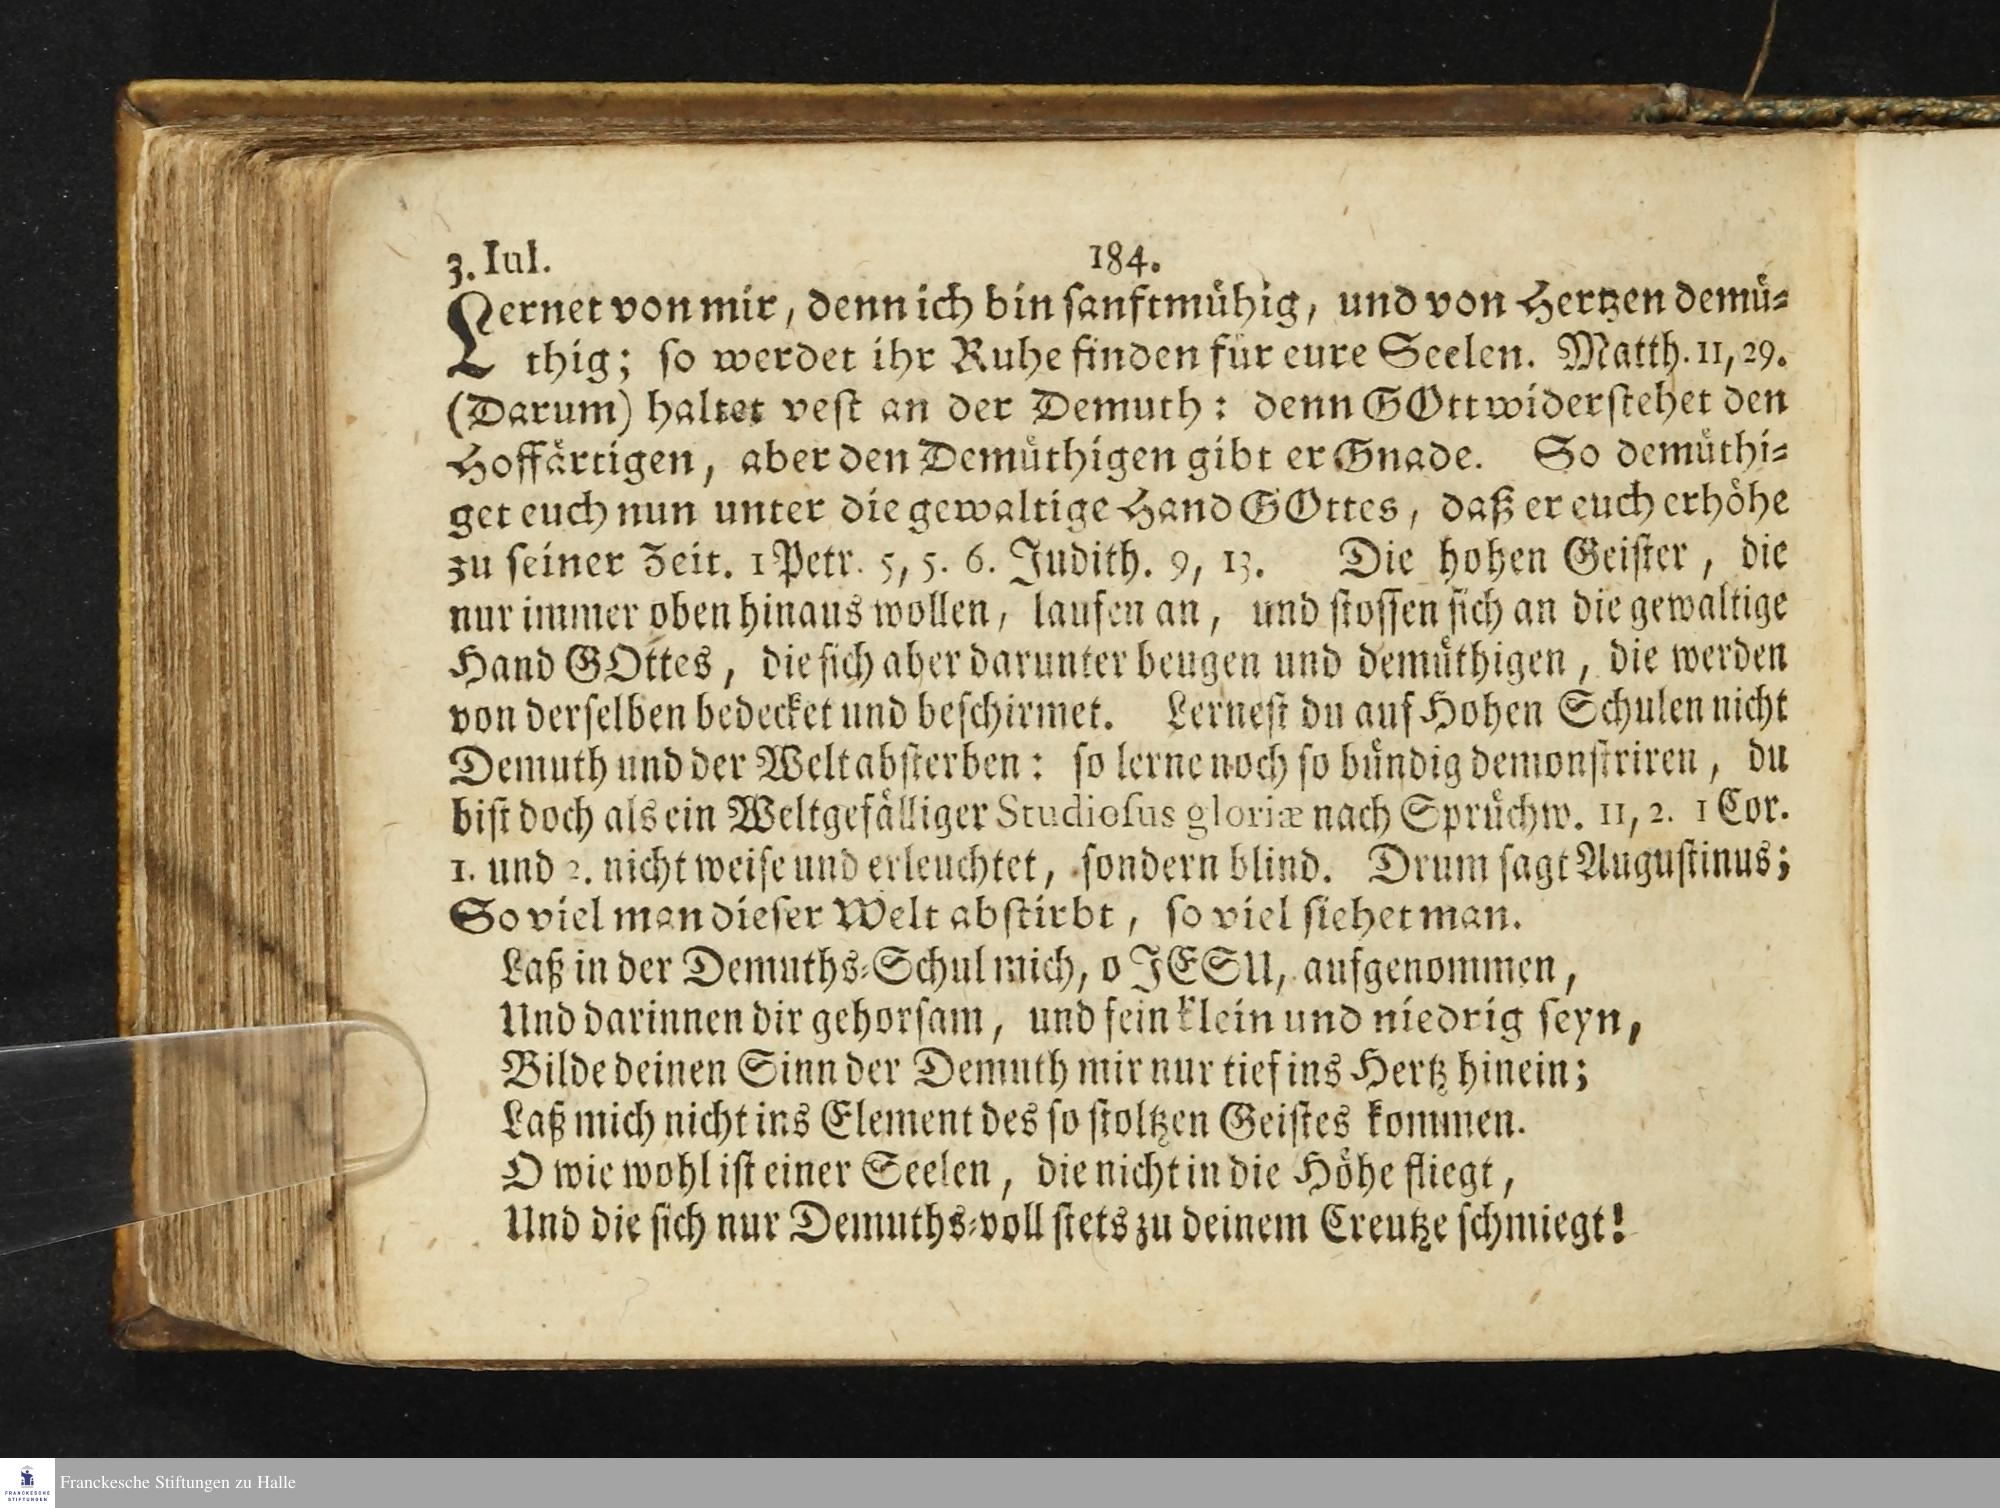 3. Iul. 184.
Lernet von mir, denn ich bin sanftmühig, und von Hertzen demü-
thig; so werdet ihr Ruhe finden für eure Seelen. Matth. 11, 29.
(Darum) haltet vest an der Demuth: denn GOtt widerstehet den
Hoffärtigen, aber den Demüthigen gibt er Gnade. So demüthi-
get euch nun unter die gewaltige Hand GOttes, daß er euch erhöhe
zu seiner Zeit. 1 Petr. 5, 5. 6. Judith. 9, 13. Die hohen Geister, die
nur immer oben hinaus wollen, laufen an, und stossen sich an die gewaltige
Hand GOttes, die sich aber darunter beugen und demüthigen, die werden
von derselben bedecket und beschirmet. Lernest du auf Hohen Schulen nicht
Demuth und der Welt absterben: so lerne noch so bündig demonstriren, du
bist doch als ein Weltgefälliger Studiosus gloriæ nach Sprüchw. 11, 2. 1 Cor.
1. und 2. nicht weise und erleuchtet, sondern blind. Drum sagt Augustinus;
So viel man dieser Welt abstirbt, so viel siehet man.
Laß in der Demuths-Schul mich, o JESU, aufgenommen,
Und darinnen dir gehorsam, und fein klein und niedrig seyn,
Bilde deinen Sinn der Demuth mir nur tief ins Hertz hinein;
Laß mich nicht ins Element des so stoltzen Geistes kommen.
O wie wohl ist einer Seelen, die nicht in die Höhe fliegt,
Und die sich nur Demuths-voll stets zu deinem Creutze schmiegt!
FRANCKESCHE
STIFTUNGEN
Franckesche Stiftungen zu Halle